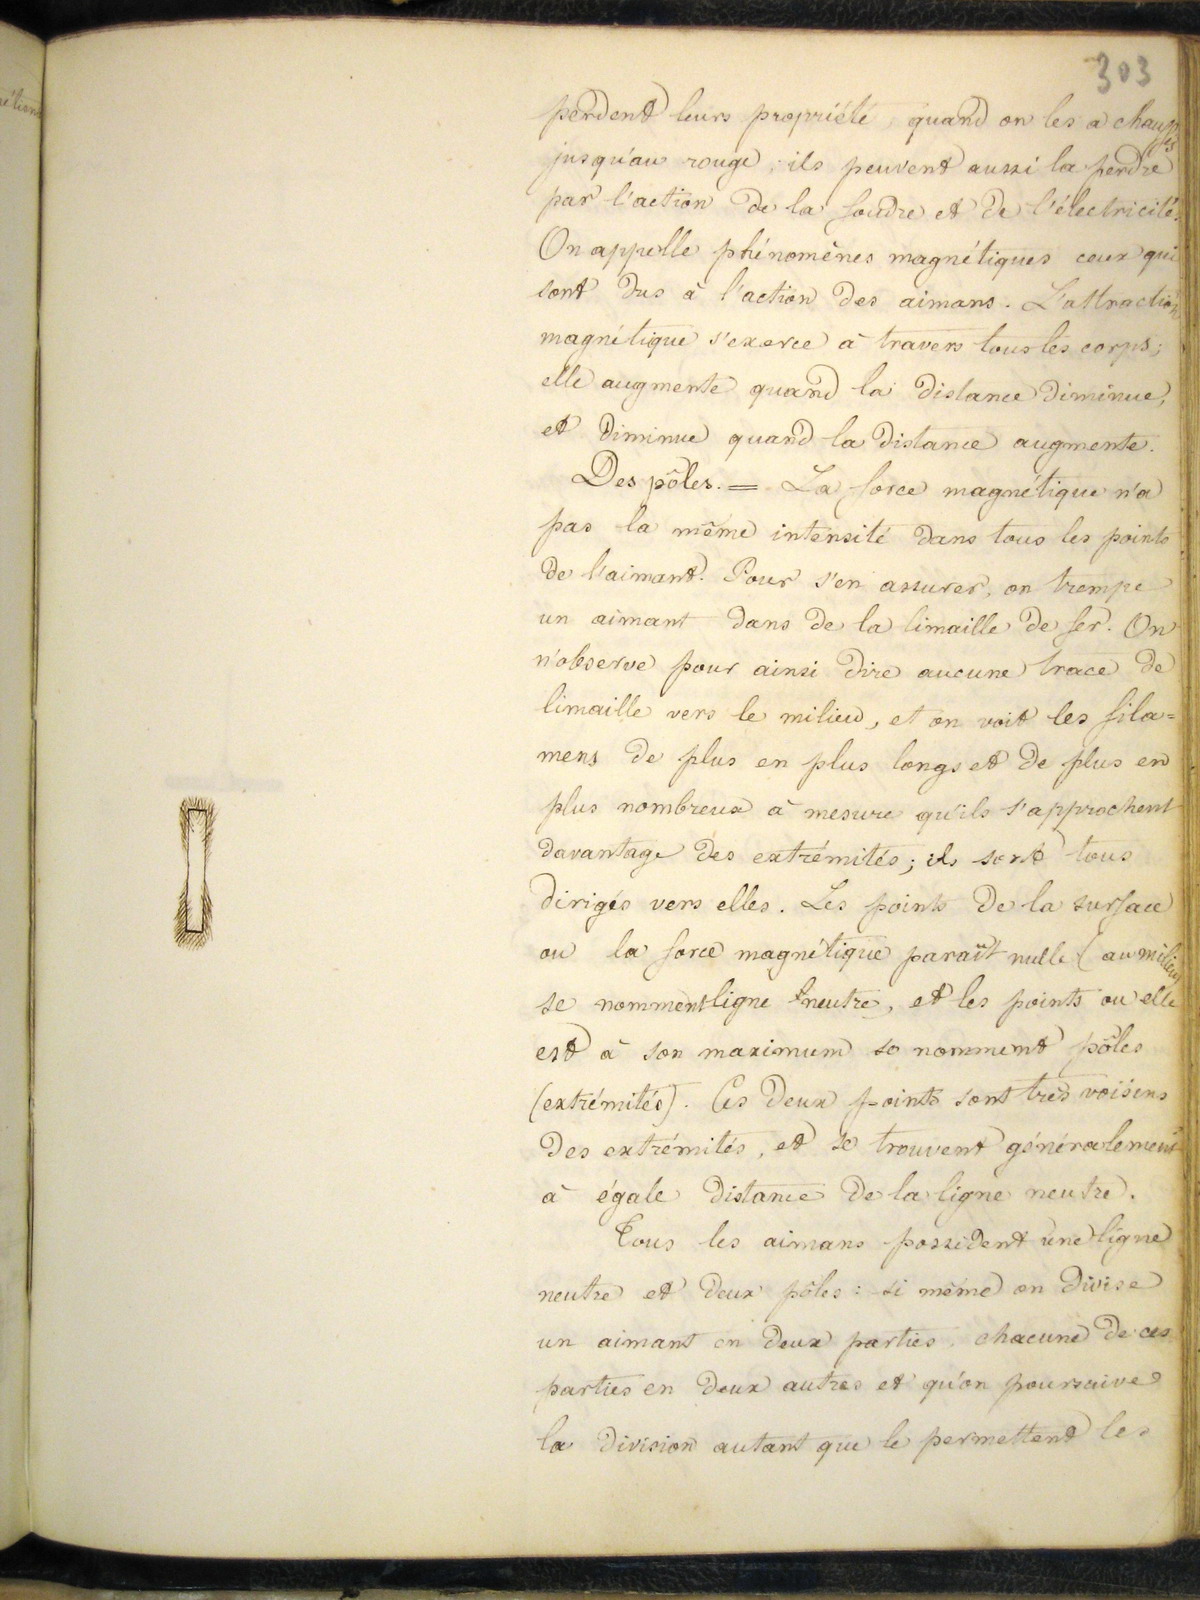 303
perdent leurs propriété quand on les a chauffés
jusqu'au rouge, ils peuvent aussi la perdre
par l'action de la foudre et de l'électricité.
On appelle phénomènes magnétiques ceux qui
sont dus à l'action des aimans. L'attraction
magnétique s'exerce à travers tous les corps;
elle augmente quand la distance diminue,
et diminue quand la distance augmente.
Des pôles. = La force magnétique n'a
pas la même intensité dans tous les points
de l'aimant. Pour s'en assurer, on trempe
un aimant dans de la limaille de fer. On
n'observe pour ainsi dire aucune trace de
limaille vers le milieu, et on voit les fila=
mens de plus en plus longs et de plus en
plus nombreux à mesure qu'ils s'approchent
davantage des extrémités; ils sont tous
dirigés vers elles. Les points de la surface
ou la force magnétique paraît nulle (au milieu
se nomment ligne neutre, et les points ou elle
est à son maximum se nomment pôles
(extrémités). Ces deux points sont très voisins
des extrémités, et se trouvent généralement
à égale distance de la ligne neutre.
Tous les aimans possèdent une ligne
neutre et deux pôles : si même on divise
un aimant en deux parties, chacune de ces
parties en deux autres et qu'on poursuive
la division autant que le permettent les